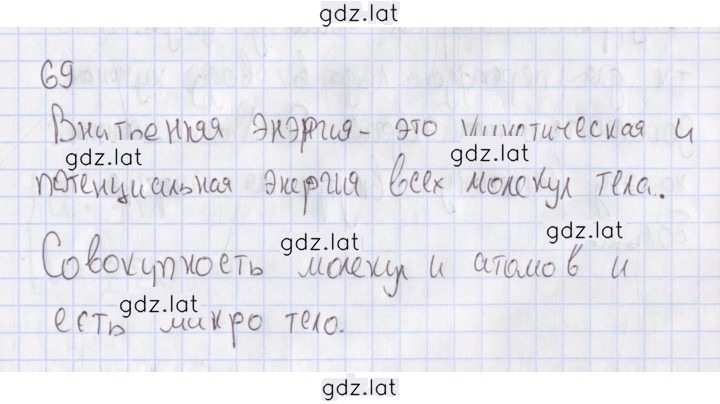 gdz.lat
69
Внутренняя энэргия - это кинетическая и
gdz.lat
gdz.lat
потенциальная энергия всех молекул тела.
gdz.lat
gdz.lat
Совокупность молекул и атомов и
gdz.lat
есть микро тело.
gdz.lat